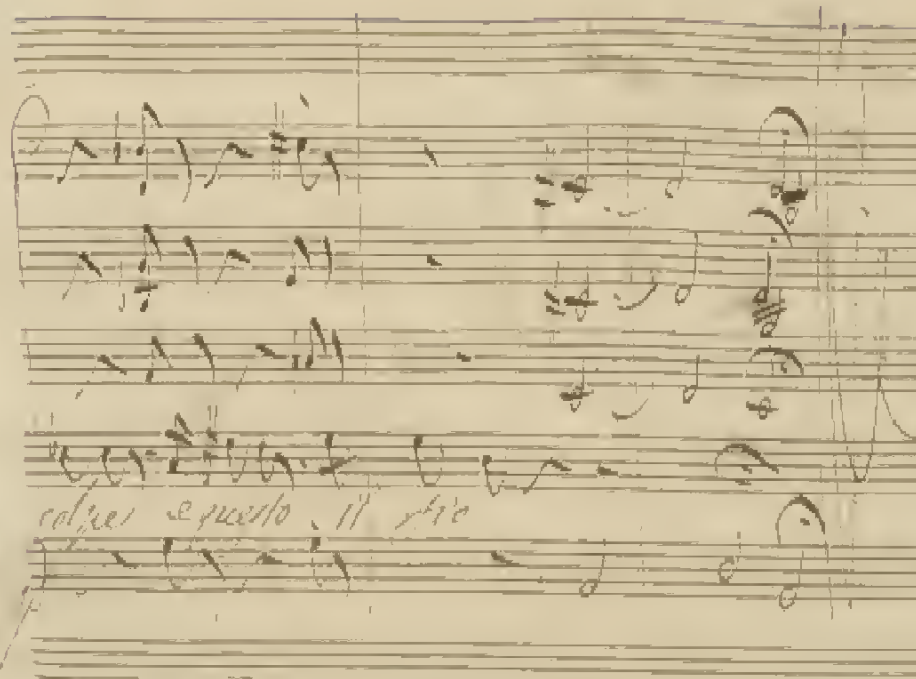 colpe e questo il mio